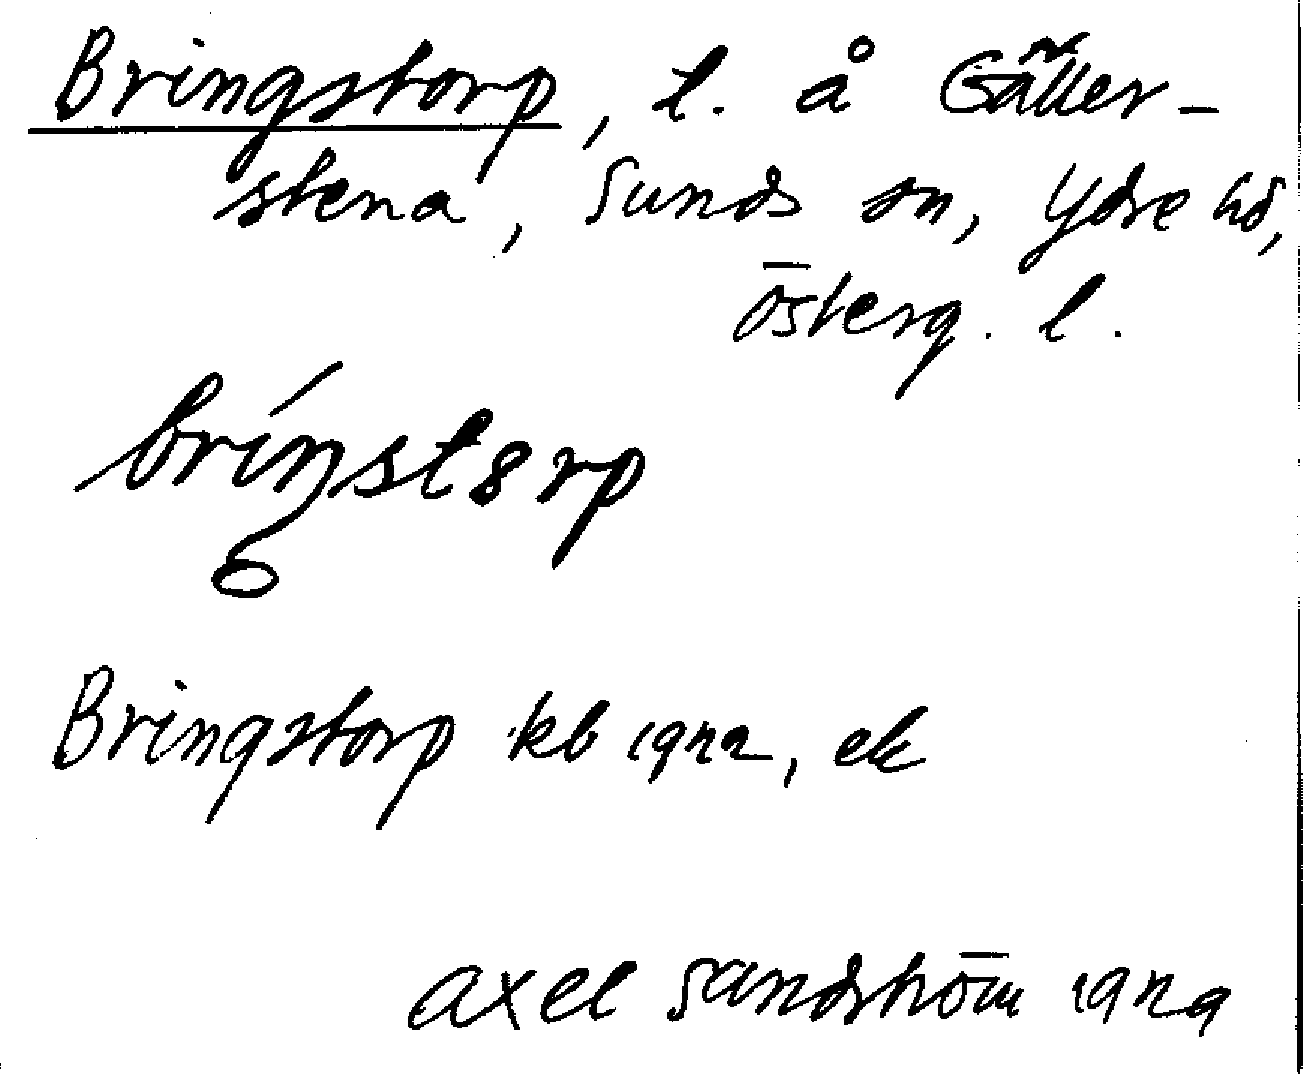 Bringstorp, l. å Gäller-
stena, Sunds sn, Ydre hd,
Österg. l.
bríŋst8rp
Bringstorp kb 1922, ek
Axel Sandström 1929